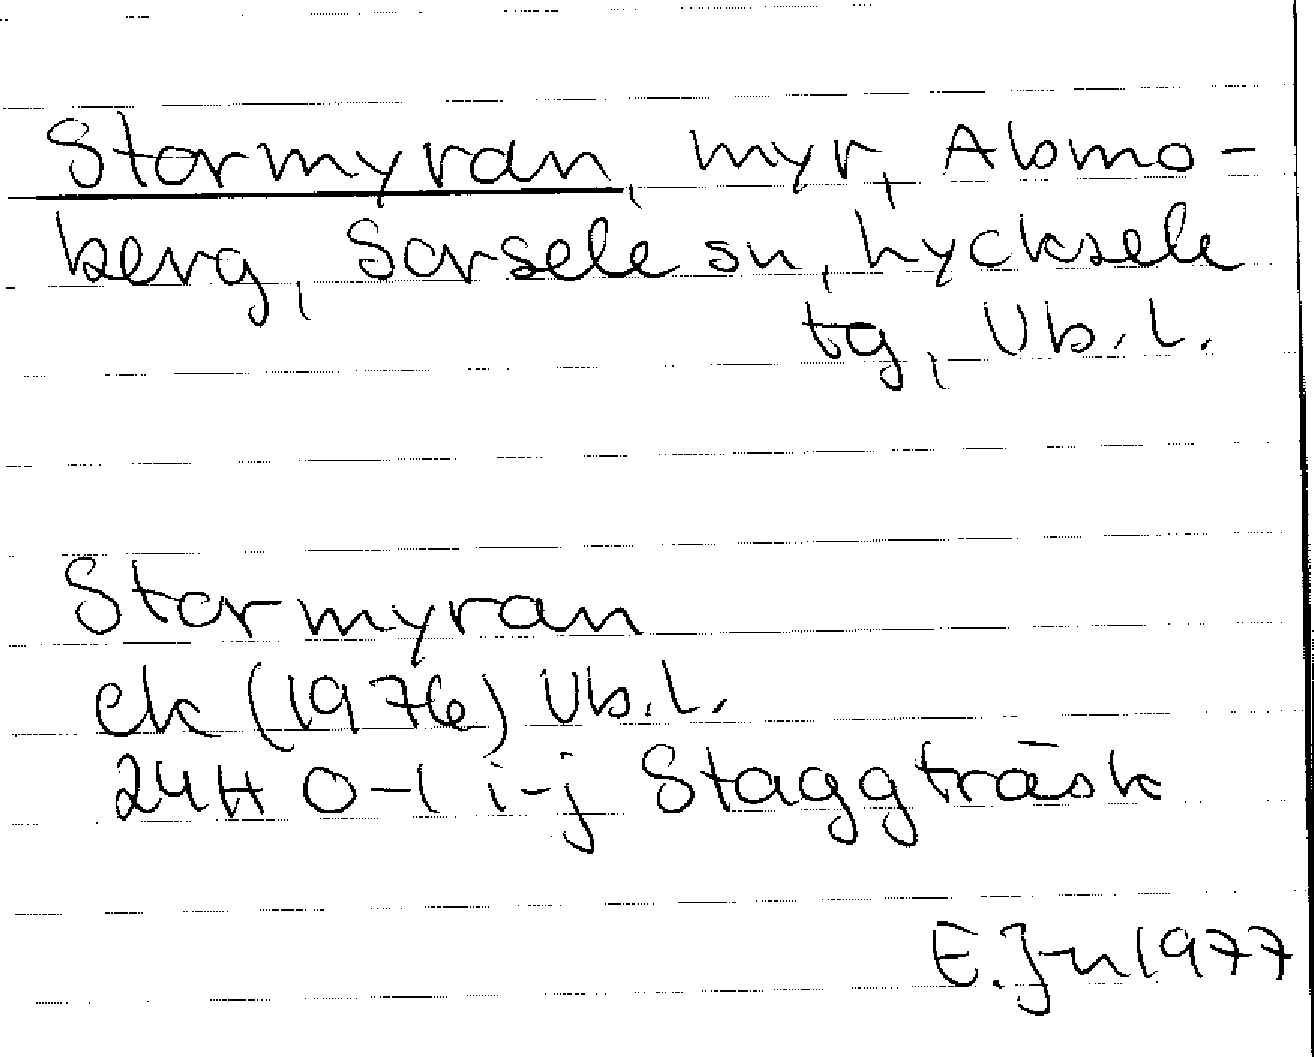 Stormyran, myr, Abmo-
berg, Sorsele sn, Lycksele
tg, Vb.l.
Stormyran
ek (1976) Vb.l.
24H 0-1 i-j Staggträsk
E.J-n 1977